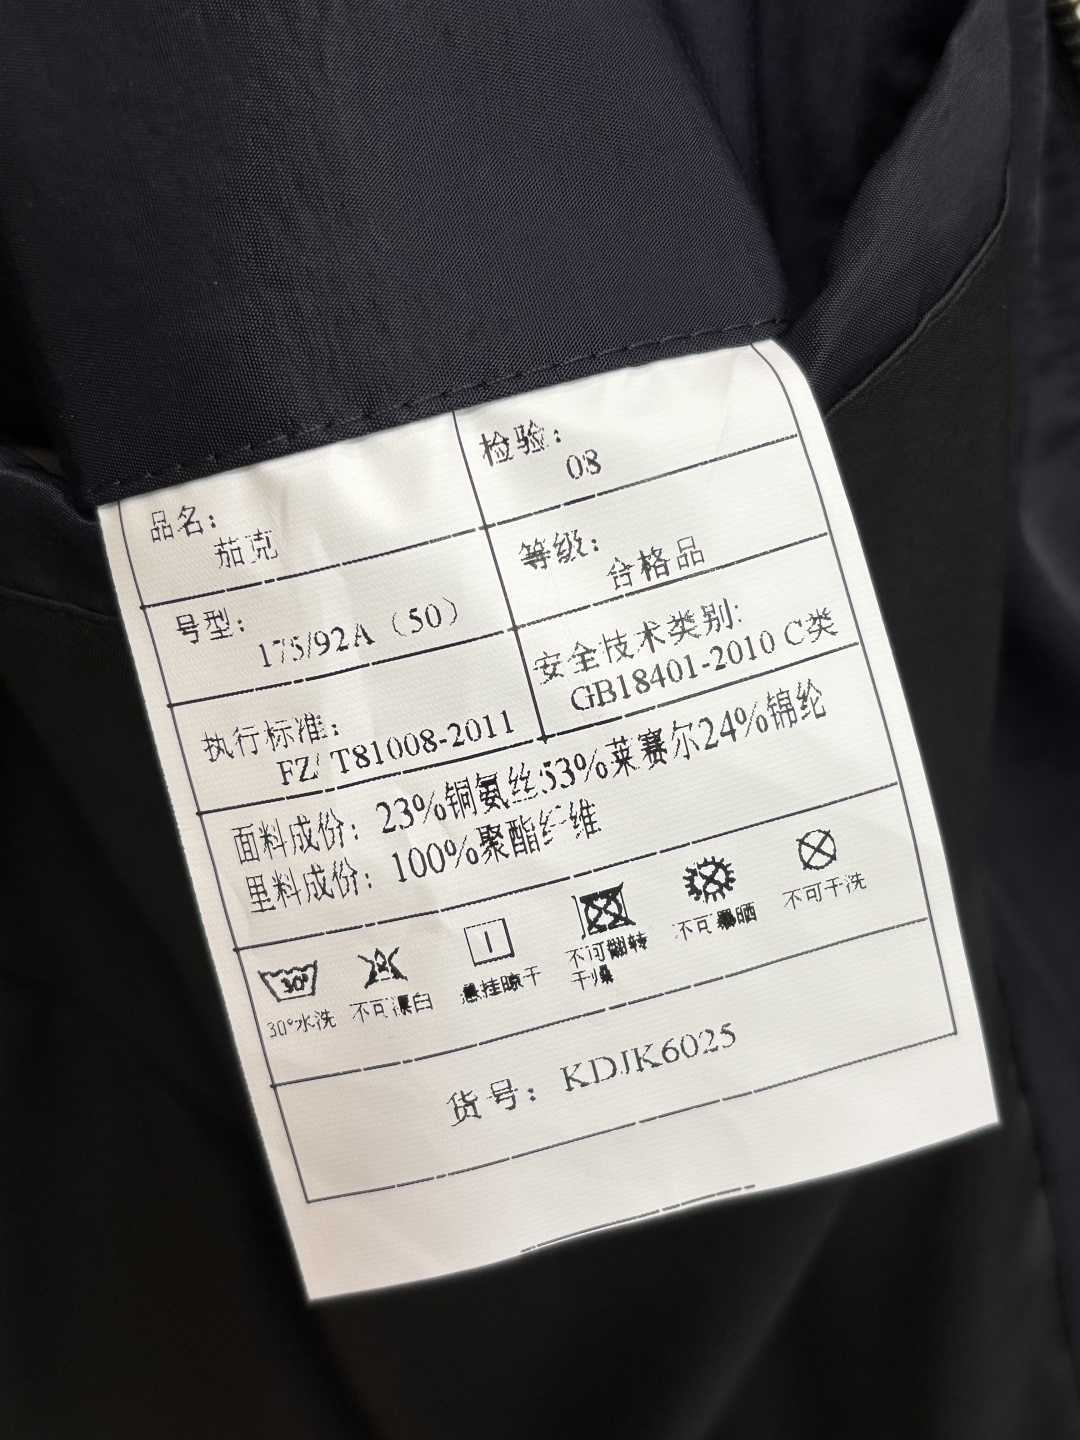 品名:
茄克
检验:
08
号型:
175/92A（50）
等级:
合格品
执行标准:
FZ/T81008-2011
安全技术类别:
GB18401-2010 C类
面料成份: 23%铜氨丝53%莱赛尔24%锦纶
里料成份: 100%聚酯纤维
30°水洗
不可漂白
悬挂晾干
不可翻转
干燥
不可暴晒
不可干洗
货号: KDJK6025